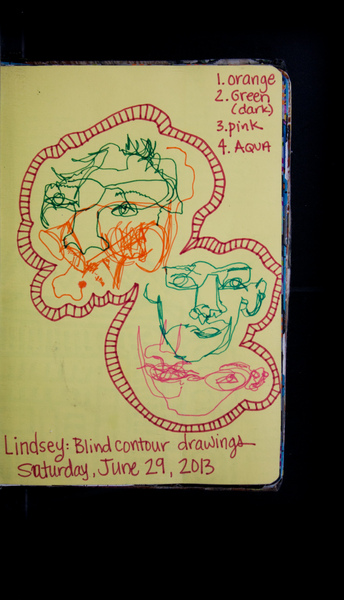 1. orange
2. Green
(dark)
3. pink
4. AQUA
Lindsey: Blind contour drawings
Saturday, June 29, 2013